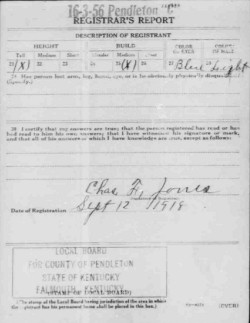 16-3-56 Pendleton C
REGISTRAR'S REPORT
DESCRIPTION OF REGISTRANT
HEIGHT BUILD COLOR OF EYES COLOR OF HAIR
Tall Medium Short Slender Medium Stout
21 (X) 22 23 24 25 (X) 26 27 Blue 28 Light
29 Has person lost arm, leg, hand, eye, or is he obviously physically disqualified?
(Specify.)
30 I certify that my answers are true; that the person registered has read or has
had read to him his own answers; that I have witnessed his signature or mark,
and that all of his answers of which I have knowledge are true, except as follows:
Chas F. Jones
Date of Registration Sept 12 1918
LOCAL BOARD
FOR COUNTY OF PENDLETON
STATE OF KENTUCKY
FALMOUTH, KENTUCKY
(STAMP OF LOCAL BOARD)
(The stamp of the Local Board having jurisdiction of the area in which
the registrant has his permanent home shall be placed in this box.)
(OVER)